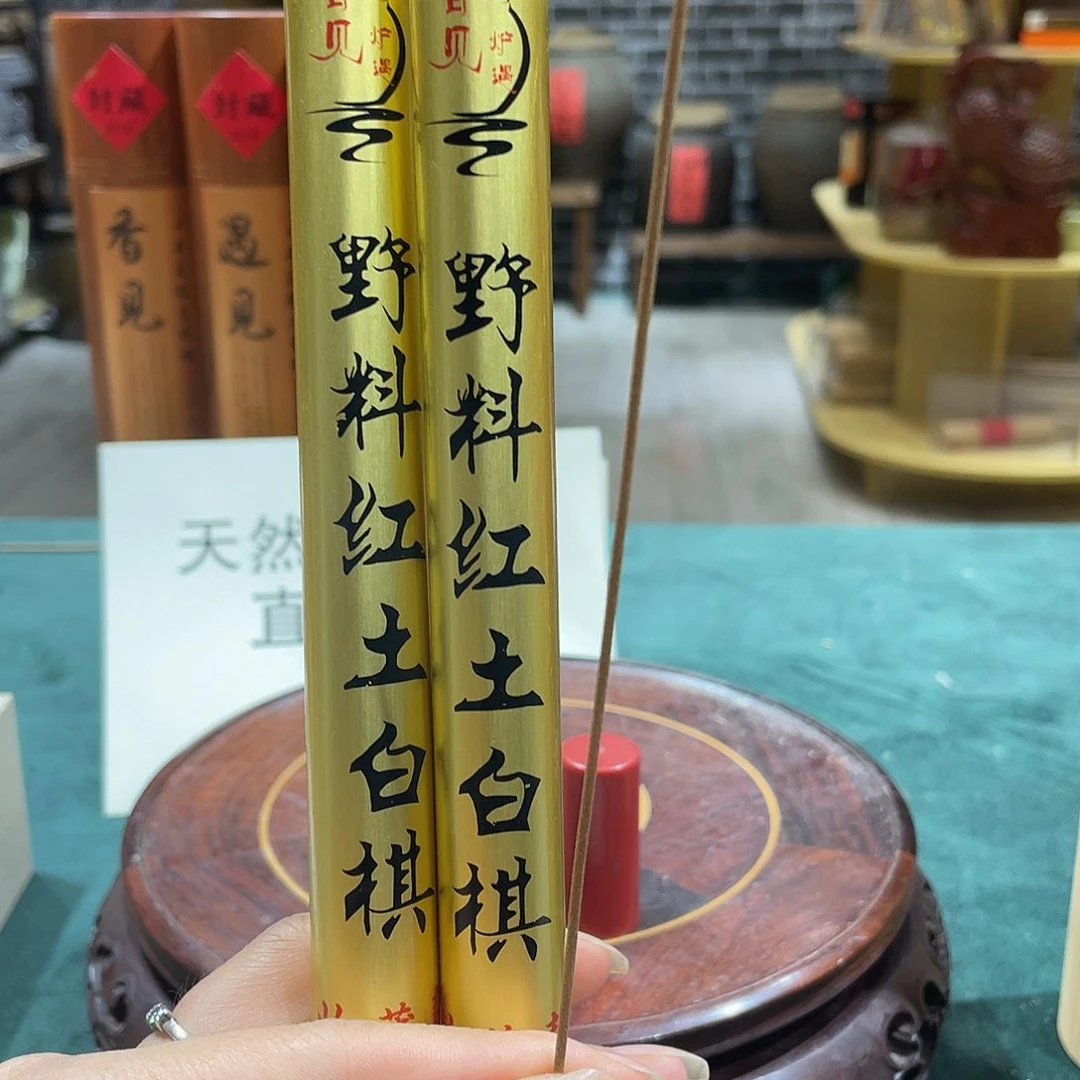 封藏
香见
封藏
遇见
见
炉遇
野料红土白棋
见
炉遇
野料红土白棋
天然
直